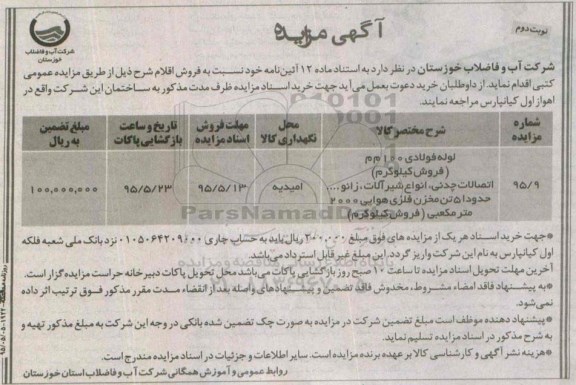 نوبت دوم
آگهی مزایده
شرکت آب و فاضلاب
خوزستان
شرکت آب و فاضلاب خوزستان در نظر دارد به استناد ماده ۱۲ آئین‌نامه خود نسبت به فروش اقلام شرح ذیل از طریق مزایده عمومی
کتبی اقدام نماید. از داوطلبان خرید دعوت بعمل می‌آید جهت خرید اسناد مزایده ظرف مدت مذکور به ساختمان این شرکت واقع در
اهواز اول کیانپارس مراجعه نمایند.
شماره مزایده
شرح مختصر کالا
محل نگهداری کالا
مهلت فروش اسناد مزایده
تاریخ و ساعت بازگشایی پاکات
مبلغ تضمین به ریال
۹۵/۹
لوله فولادی ۱۰۰ م م
(فروش کیلوگرم)
اتصالات چدنی، انواع شیرآلات، زانو ....
حدودا ۵ تن مخزن فلزی هوایی ۲۰۰۰
متر مکعبی (فروش کیلوگرم)
امیدیه
۹۵/۵/۱۳
۹۵/۵/۲۳
۱۰۰,۰۰۰,۰۰۰
ParsNamadData
*جهت خرید اسناد هر یک از مزایده های فوق مبلغ ۳۰۰,۰۰۰ ریال باید به حساب جاری ۰۱۰۵۰۶۴۲۰۹۰۰۰ نزد بانک ملی شعبه فلکه
اول کیانپارس به نام این شرکت واریز گردد. این مبلغ غیر قابل استرداد می‌باشد.
آخرین مهلت تحویل اسناد مزایده تا ساعت ۱۰ صبح روز بازگشایی پاکات می‌باشد محل تحویل پاکات دبیرخانه حراست مزایده‌گزار است.
*به پیشنهاد فاقد امضاء مشروط، مخدوش فاقد تضمین و پیشنهادهای واصله بعد از انقضاء مدت مقرر مذکور فوق ترتیب اثر داده
نمی‌شود.
*پیشنهاد دهنده موظف است مبلغ تضمین شرکت در مزایده به صورت چک تضمین شده بانکی در وجه این شرکت به مبلغ مذکور تهیه و
به شرح مذکور در اسناد مزایده تسلیم نماید.
*هزینه نشر آگهی و کارشناسی کالا بر عهده برنده مزایده است. سایر اطلاعات و جزئیات در اسناد مزایده مندرج است.
روابط عمومی و آموزش همگانی شرکت آب و فاضلاب استان خوزستان